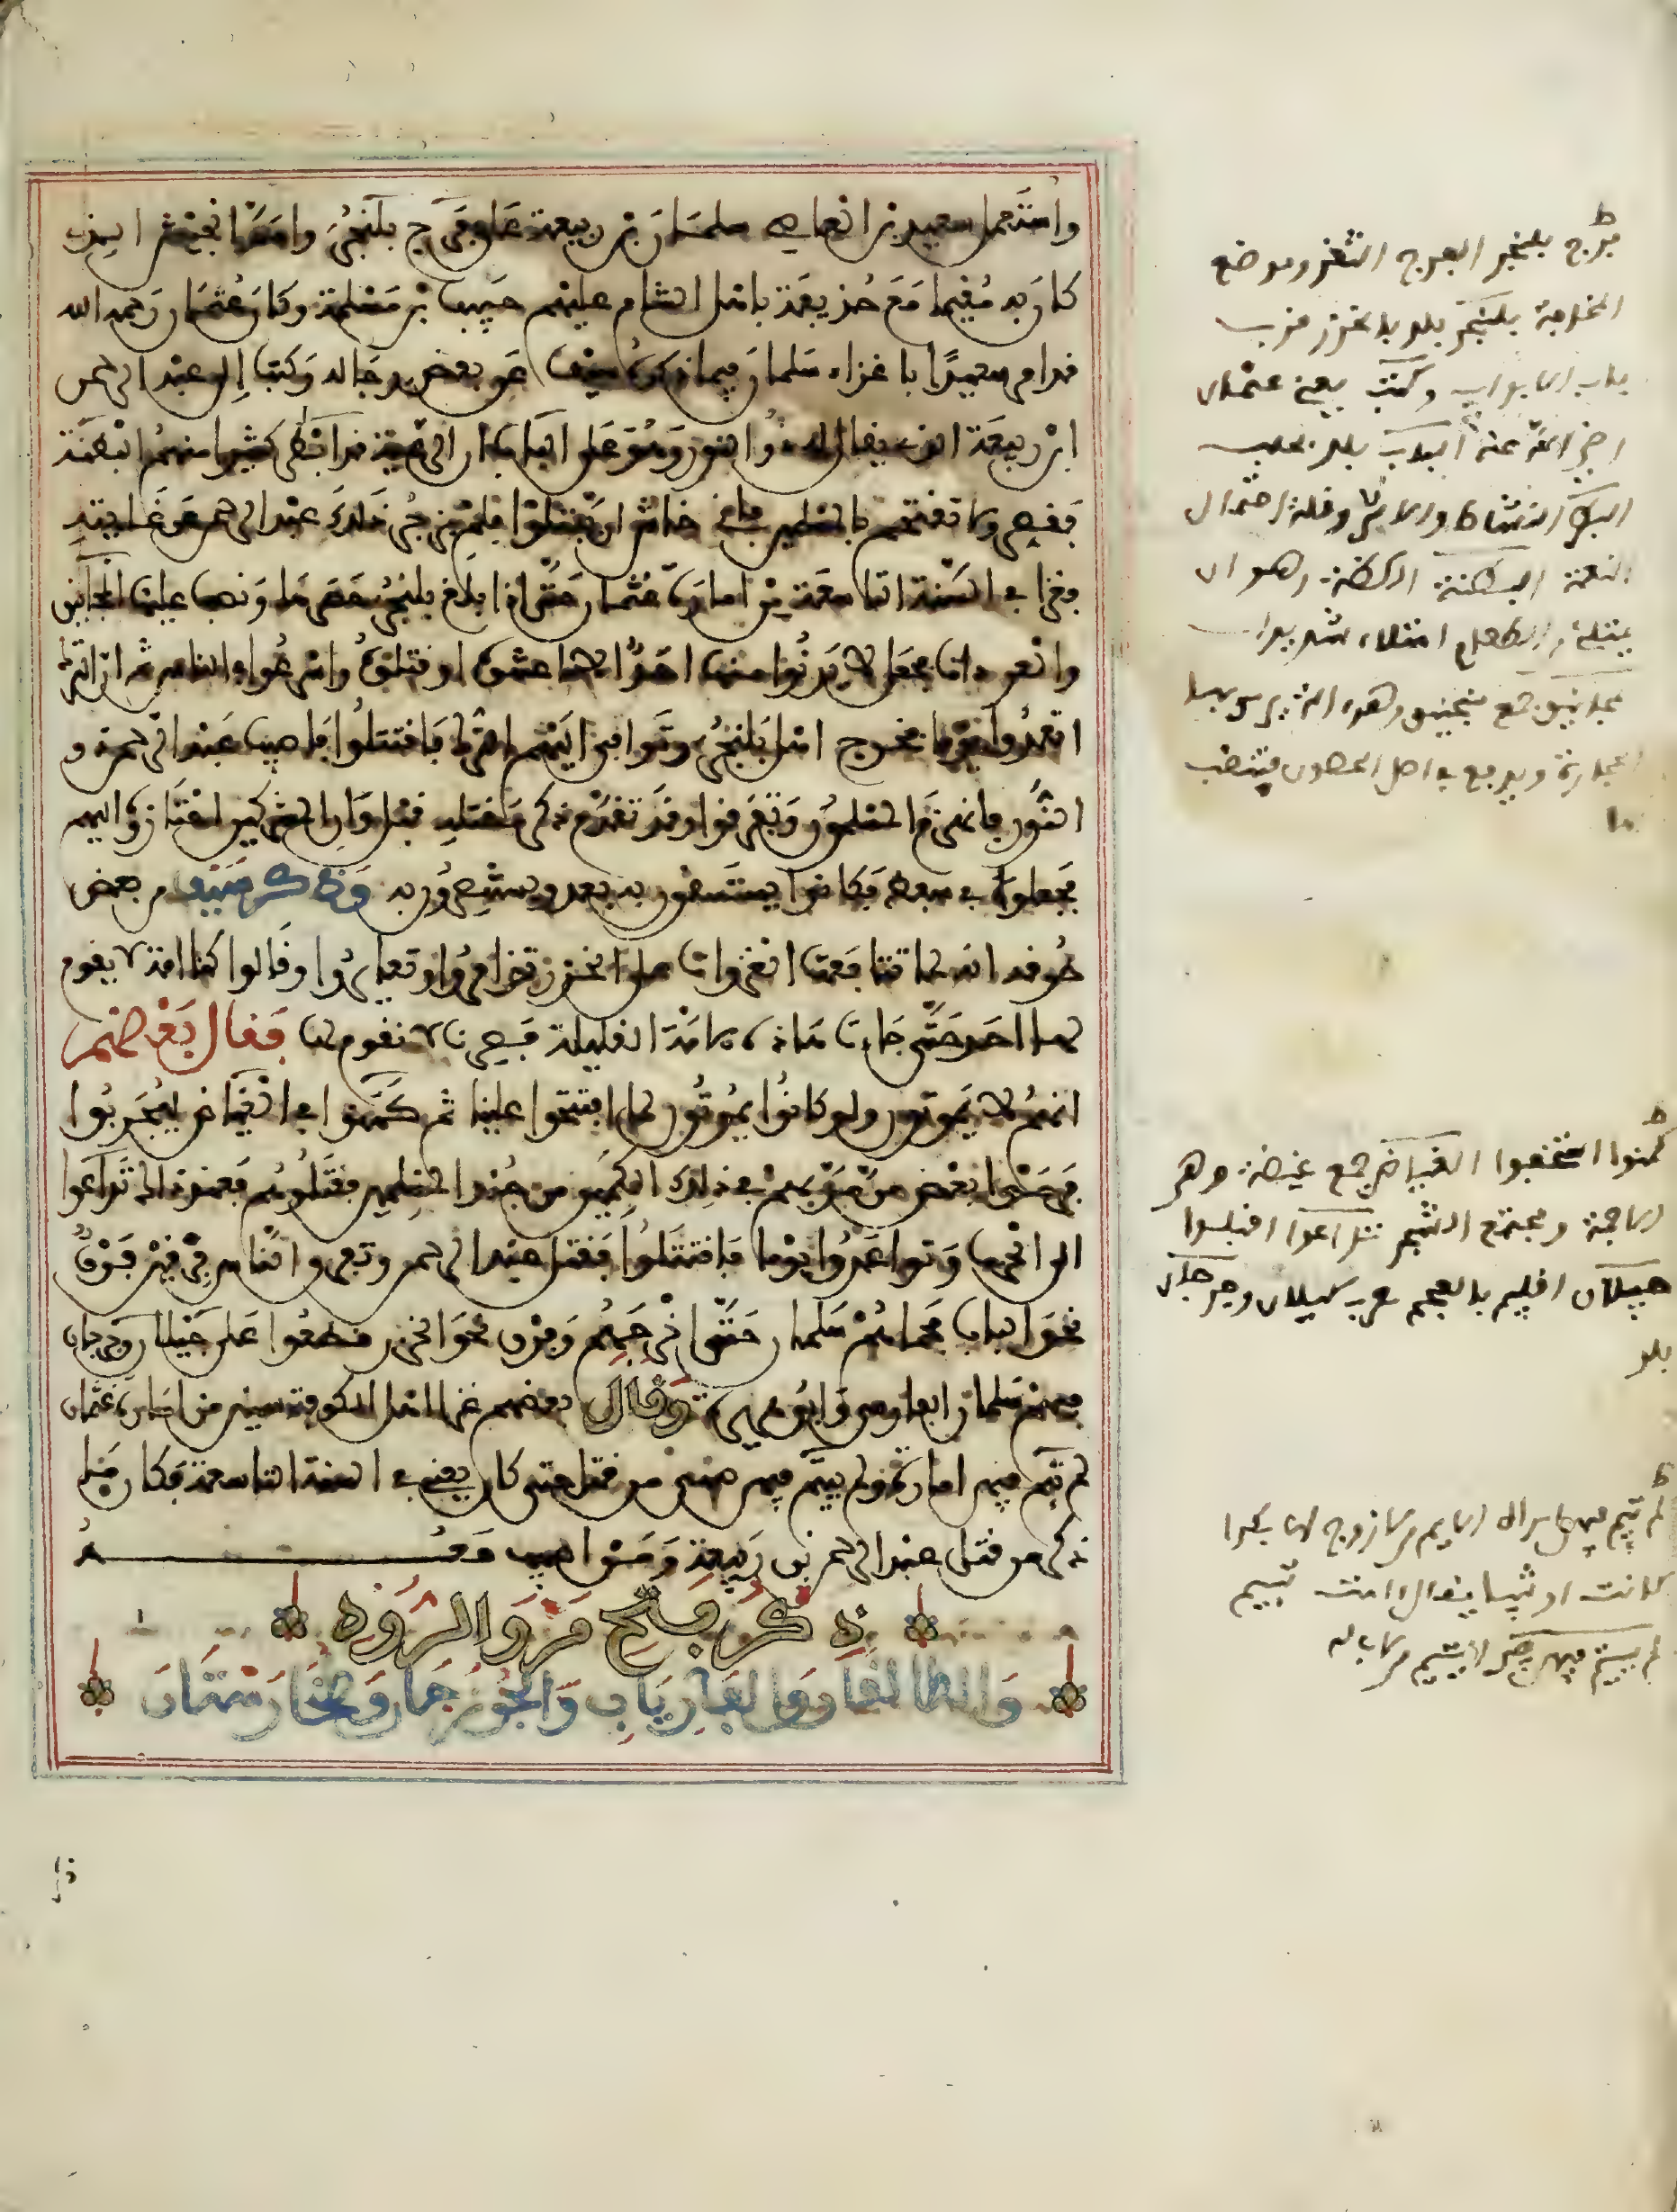 واستعمل سعيد بن العاصي سلمان بن ربيعة على فرج بلنجر وامد الجيش الذي
كان به مقيما مع حذيفة باهل الشام عليهم حبيب بن مسلمة وكان عثمان رحمه الله
قد امر سعيدا باغزاء سلمان فيما ذكره سيف عن بعض رجاله وكتب الى عبد الرحمن
ابن ربيعة الذي يقال له ذو النور وهو على الباب ان الرعية قد ابطر كثيرا منهم البطنة
فقصر ولا تقتحم بالمسلمين فاني خاش ان يقتلوا فلم يزجر ذلك عبد الرحمن عن غايته
فغزا في السنة التاسعة من امارة عثمان حتى اذا بلغ بلنجر حصرها ونصب عليها المجانيق
والعرادات فجعل لا يدنوا منها احد الا اعنتوه او قتلوه واسرعوا في الناس ثم ان الترك
اتعدوا يوما فخرج اهل بلنجر وتوافى اليهم الترك فاقتتلوا فاصيب عبد الرحمن ذو
النور فانهزم المسلمون وتفرقوا وقد تقدم ذكر مقتله قبل وان المشركين احتازوه اليهم
فجعلوه في سفط فكانوا يستسقون به بعد ويستنصرون به وذكر سيف من بعض
طرقه انه لما تتابعت الغزوات على الخزر تذامروا وتعايروا وقالوا كنا امة لا يقوم
لها احد حتى جاءت هذه الامة القليلة فصرنا لا نقوم لها فقال بعضهم
انهم لا يموتون ولو كانوا يموتون لما اقتحموا علينا ثم كمنوا في الغياض ليجربوا
فرموا بعض من مر بهم في ذلك الكمين من جند المسلمين فقتلوهم فعند ذلك تداعوا
الى الحرب وتواعدوا يوما فاقتتلوا فقتل عبد الرحمن وتفرق الناس فرقتين فرقة
نحو الباب فحماهم سلمان حتى اخرجهم وفرق نحو الخزر فطلعوا على جيلان وجرجان
فيهم سلمان الفارسي وابو هريرة وقال بعضهم غزا اهل الكوفة سنين من امارة عثمان
لم تئم فيهن امراة ولم ييتم فيهن صبي من قتل حتى كان يعني في السنة التاسعة فكان ما
ذكر من قتل عبد الرحمن بن ربيعة ومن اصيب معه
ذكر فتح مرو الروذ
والطالقان والفارياب والجوزجان وطخارستان
فرج بلنجر الفرج الثغر وموضع
المخافة بلنجر بلد بالخزر قرب
باب الابواب وكتب يعني عثمان
رضي الله عنه الباب بلد بحلب
البطر النشاط والاشر وقلة احتمال
النعمة البطنة الكظة وهو ان
يمتلئ من الطعام امتلاء شديدا
مجانيق جمع منجنيق وهو الة يرمى بها
الحجارة
كمنوا استخفوا الغياض جمع غيضة وهي
الاجمة ومجتمع الشجر تداعوا اقبلوا
جيلان اقليم بالعجم معرب كيلان وجرجان
بلد
لم تئم فيهن امراة الايم من لا زوج لها بكرا
كانت او ثيبا يقال امت تئيم
لم ييتم فيهن صبي اليتيم من لا اب له